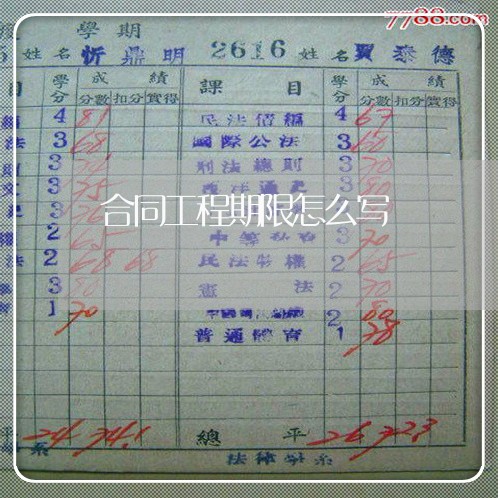 7788.com
學期
姓名 忻鼎明 2616 姓名 賈泰德
目 學分 成績 課目 學分 成績
分數 扣分 實得 分數 扣分 實得
4 81 民法債編 4 67
法 3 68 國際公法 3 60
3 刑法總則 3 70
3 75 西洋通史 3 80
3
2 65 3 70
法 2 68 68 民法物權 2 65
3 80 憲法 2 70
1 70 2 80
普通體育 1 78
合同工程期限怎么写
平 24 74.1 總平 26 72.3
系 法律學系